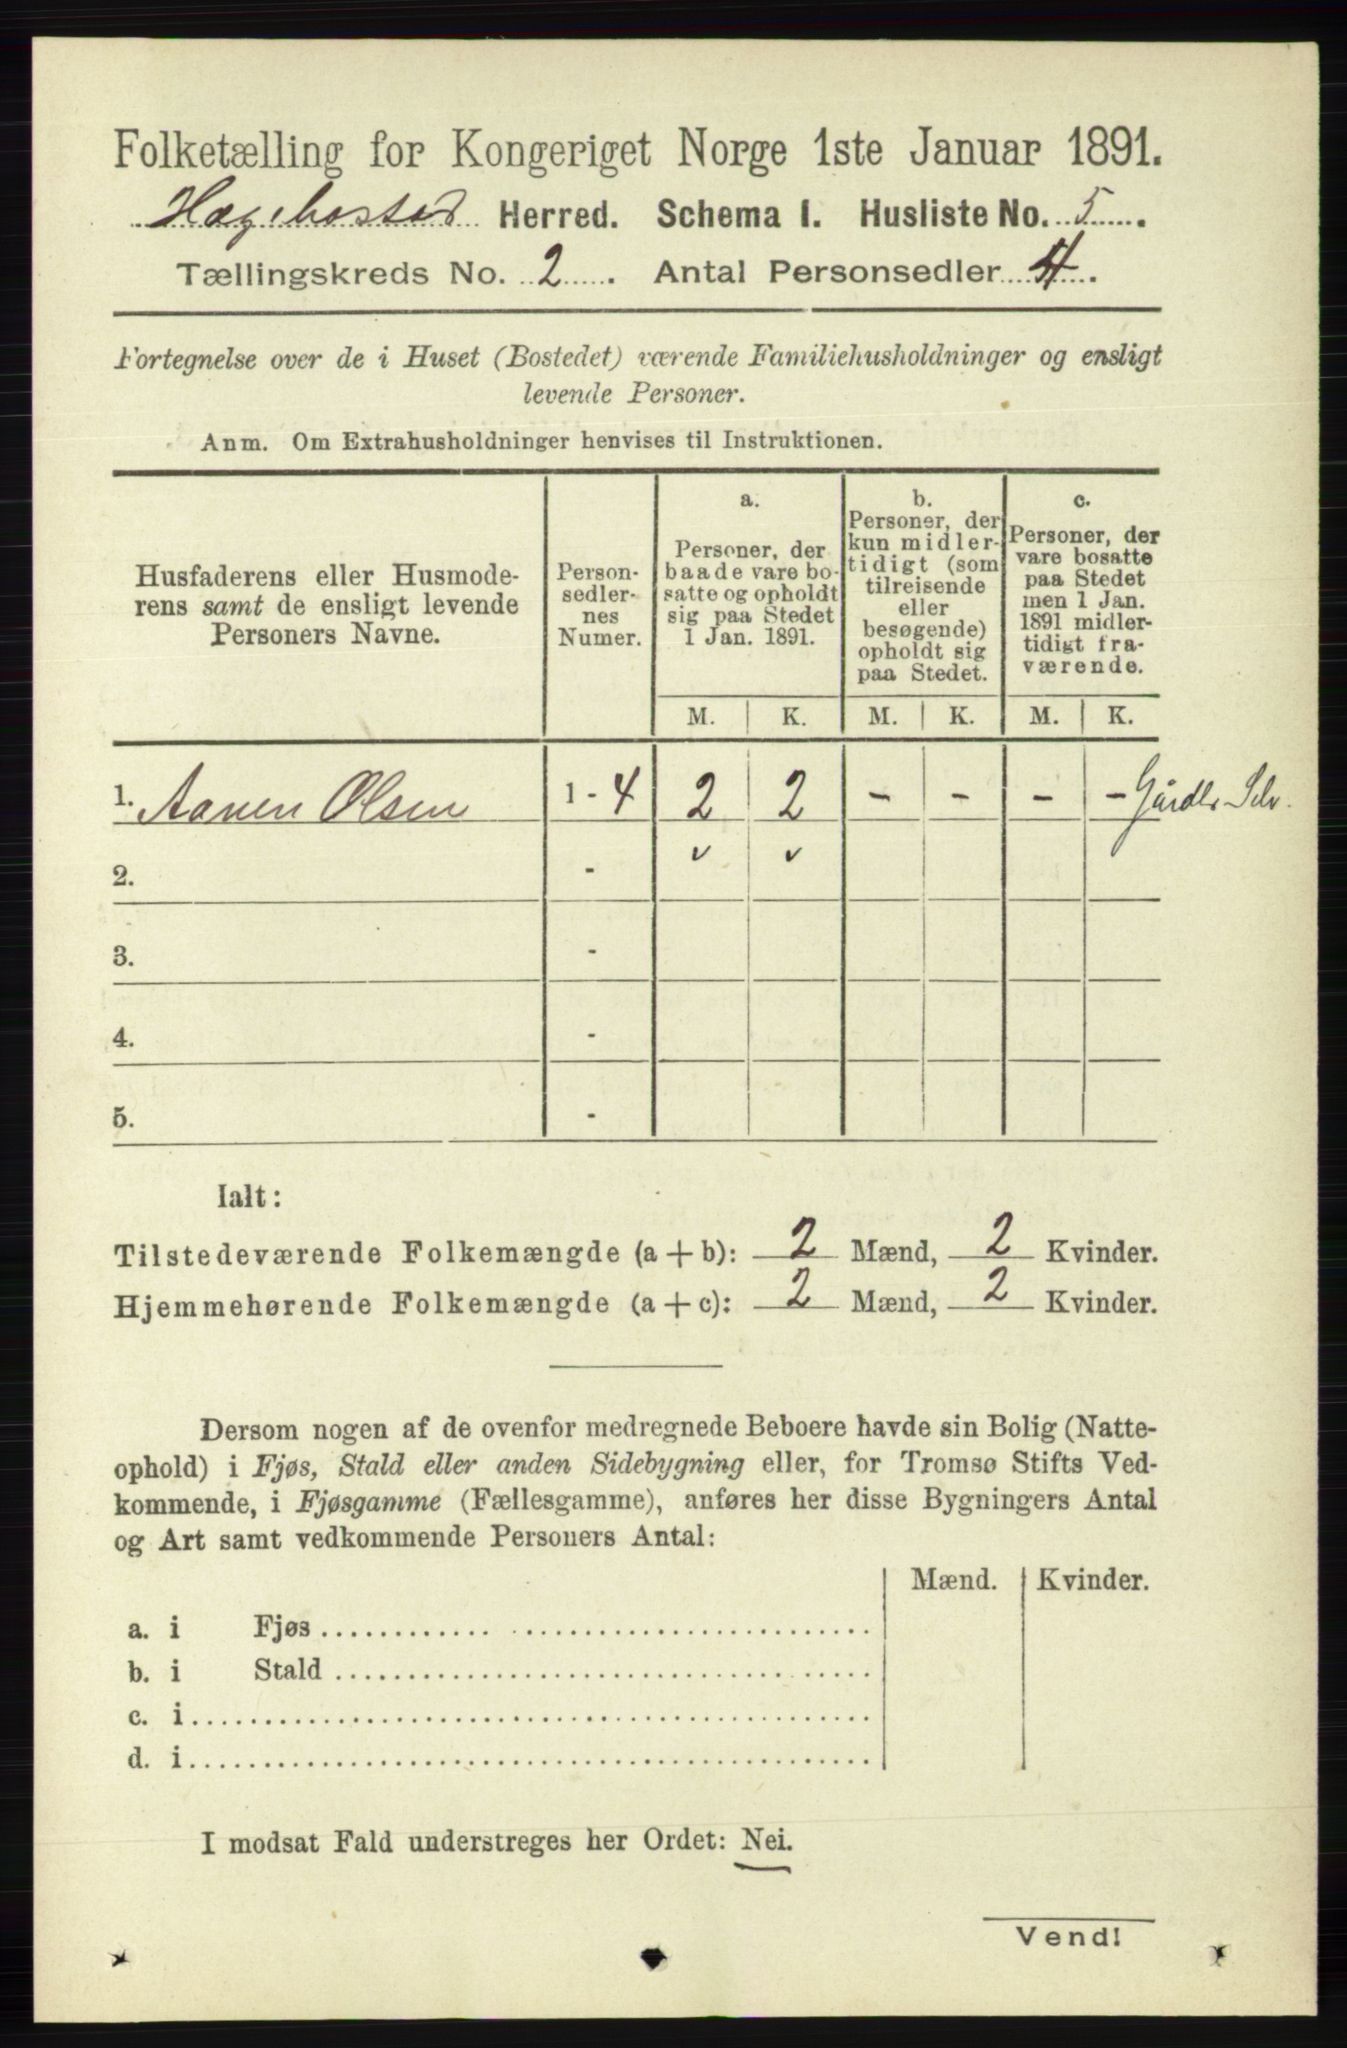 Folketælling for Kongeriget Norge 1ste Januar 1891.
Hægebostad Herred. Schema I. Husliste No. 5.
Tællingskreds No. 2. Antal Personsedler 4.
Fortegnelse over de i Huset (Bostedet) værende Familiehusholdninger og ensligt
levende Personer.
Anm. Om Extrahusholdninger henvises til Instruktionen.
Husfaderens eller Husmode-
rens samt de ensligt levende
Personers Navne.
Person-
sedler-
nes
Numer.
a.
Personer, der
baade vare bo-
satte og opholdt
sig paa Stedet
1 Jan. 1891.
b.
Personer, der
kun midler-
tidigt (som
tilreisende
eller
besøgende)
opholdt sig
paa Stedet.
c.
Personer, der
vare bosatte
paa Stedet
men 1 Jan.
1891 midler-
tidigt fra-
værende.
M. K. M. K. M. K.
1. Aanen Olsen 1 - 4 2 2 - - - - Gårdbr Selv.
v v
2. -
3. -
4. -
5. -
Ialt:
Tilstedeværende Folkemængde (a + b): 2 Mænd, 2 Kvinder.
Hjemmehørende Folkemængde (a + c): 2 Mænd, 2 Kvinder.
Dersom nogen af de ovenfor medregnede Beboere havde sin Bolig (Natte-
ophold) i Fjøs, Stald eller anden Sidebygning eller, for Tromsø Stifts Ved-
kommende, i Fjøsgamme (Fællesgamme), anføres her disse Bygningers Antal
og Art samt vedkommende Personers Antal:
Mænd. Kvinder.
a. i Fjøs
b. i Stald
c. i
d. i
I modsat Fald understreges her Ordet: Nei.
Vend!